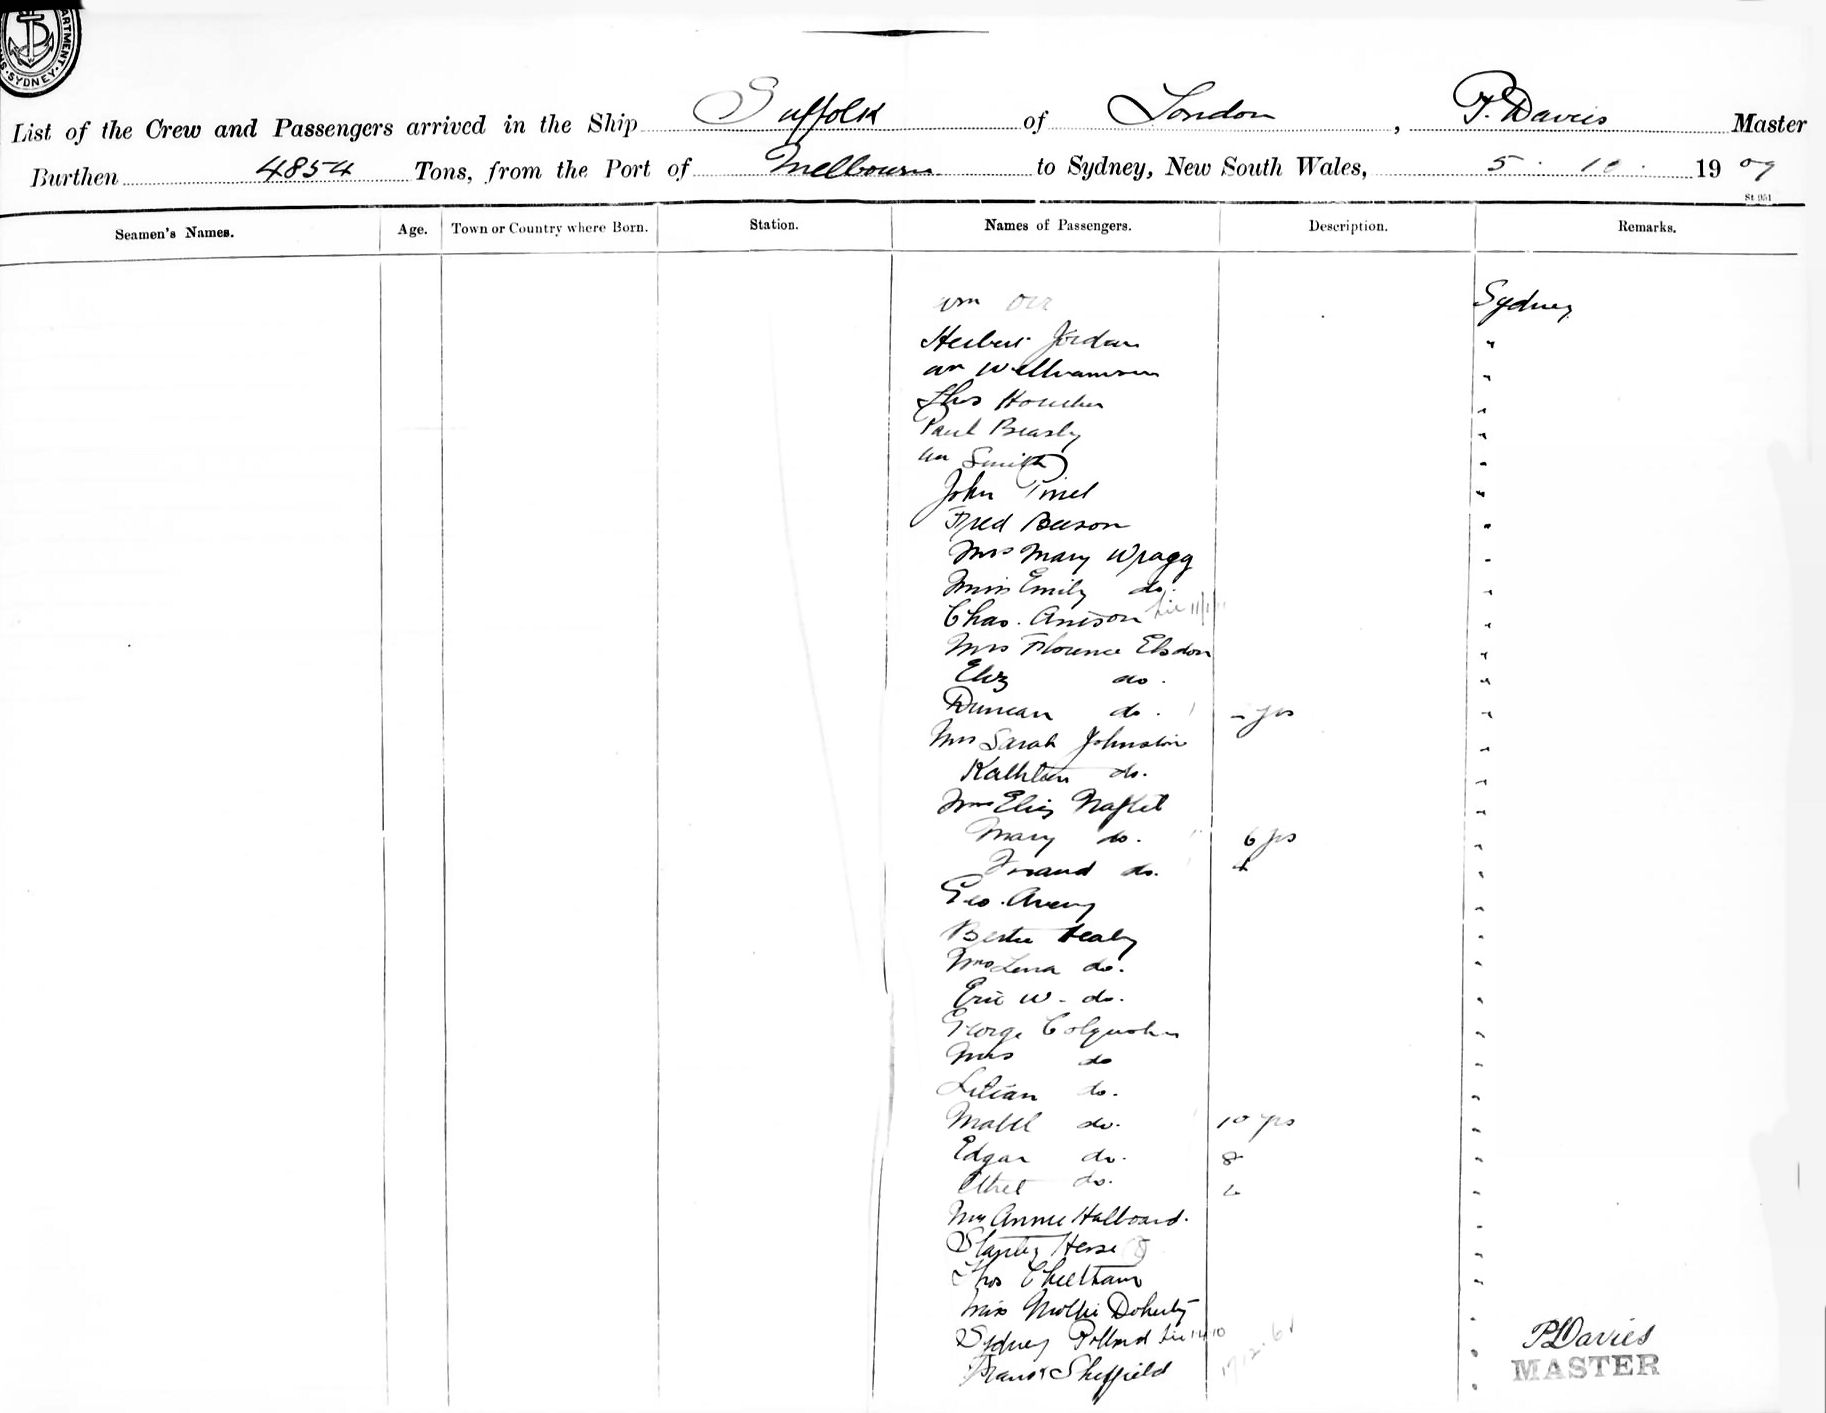 SYDNEY
List of the Crew and Passengers arrived in the Ship Suffolk of London, P. Davies Master
Burthen 4854 Tons, from the Port of Melbourn to Sydney, New South Wales, 5. 10. 1909
St 951
Seamen's Names. Age. Town or Country where Born. Station. Names of Passengers. Description. Remarks.
Wm Orr Sydney
Herbert Jordan "
Wm Williamson "
Thos "
Paul Beasly "
Wm Smith "
John "
Fred Beeson "
Mrs Mary Wragg "
Miss Emily do. "
Chas. Anison "
Mrs Florence Elsdon "
Eliz do. "
Duncan do. yrs "
Mrs Sarah Johnston "
Kathleen do. "
Mrs Eliz "
Mary do. 6 yrs "
do. "
Geo. Avery "
Bertie Healy "
Mrs Lena do. "
Eric W. do. "
George Colquohn "
Mrs do "
Lilian do. "
Mabel do. 10 yrs "
Edgar do. 8 "
Ethel do. "
Annie "
Stanley "
Thos Cheetham "
Miss Mollie Doherty "
Sydney Pollard "
Frank Sheffield "
P Davies
MASTER